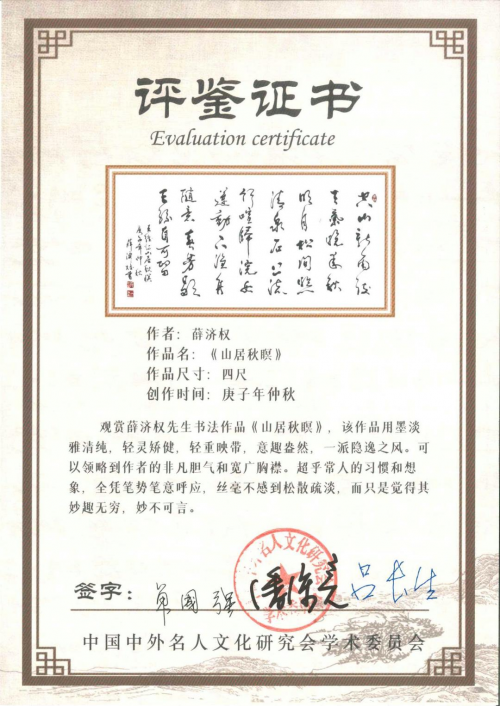 评鉴证书
Evaluation certificate
空山新雨后
天气晚来秋
明月松间照
清泉石上流
竹喧归浣女
莲动下渔舟
随意春芳歇
王孙自可留
作者：薛济权
作品名：《山居秋暝》
作品尺寸：四尺
创作时间：庚子年仲秋
观赏薛济权先生书法作品《山居秋暝》，该作品用墨淡
雅清纯，轻灵矫健，轻重映带，意趣盎然，一派隐逸之风。可
以领略到作者的非凡胆气和宽广胸襟。超乎常人的习惯和想
象，全凭笔势笔意呼应，丝毫不感到松散疏淡，而只是觉得其
妙趣无穷，妙不可言。
签字：
吕长生
中国中外名人文化研究会学术委员会